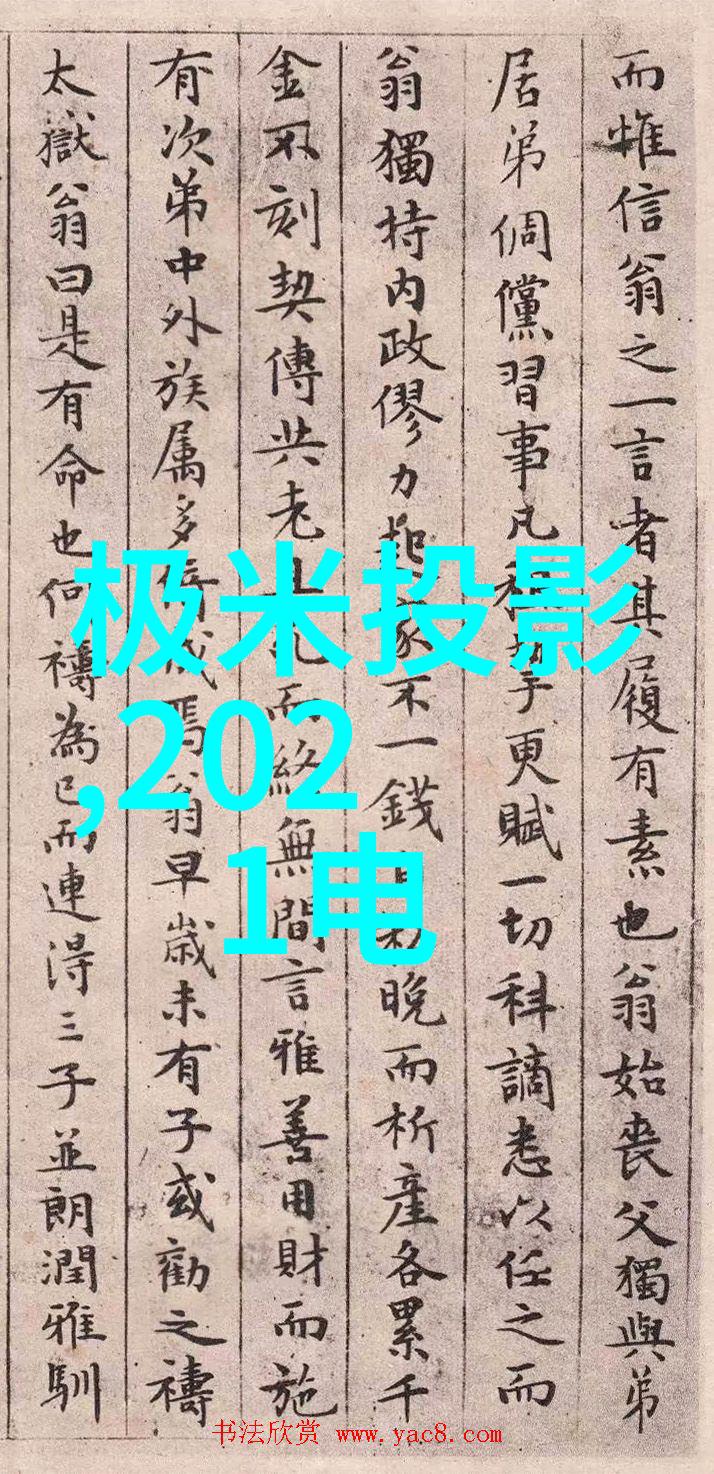 而惟信翁之一言者其履有素也翁始喪父獨與弟
居弟倜儻習事凡手更賦一切科謫悉以任之而
翁獨持内政僇力起家不一錢自私晚而析產各累千
金不刻契傳共老且死而終無間言雅善用財而施
有次第中外族属多倚成焉翁早歳未有子或勸之禱
太嶽翁曰是有命也何禱為已而連得三子並朗潤雅馴
极米投影
,202
1电
书法欣赏 www.yac8.com